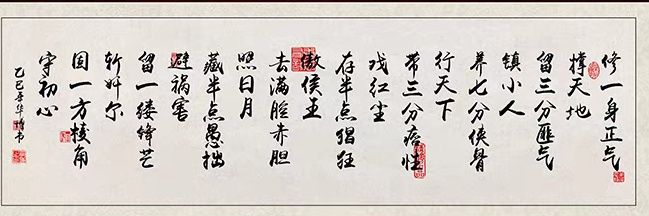 修一身正气
撑天地
留三分匪气
镇小人
养七分侠骨
行天下
带三分痞性
戏红尘
存半点猖狂
傲侯王
去满腔赤胆
照日月
藏半点愚拙
避祸害
留一缕锋芒
斩奸尔
固一方棱角
守初心
乙巳年华